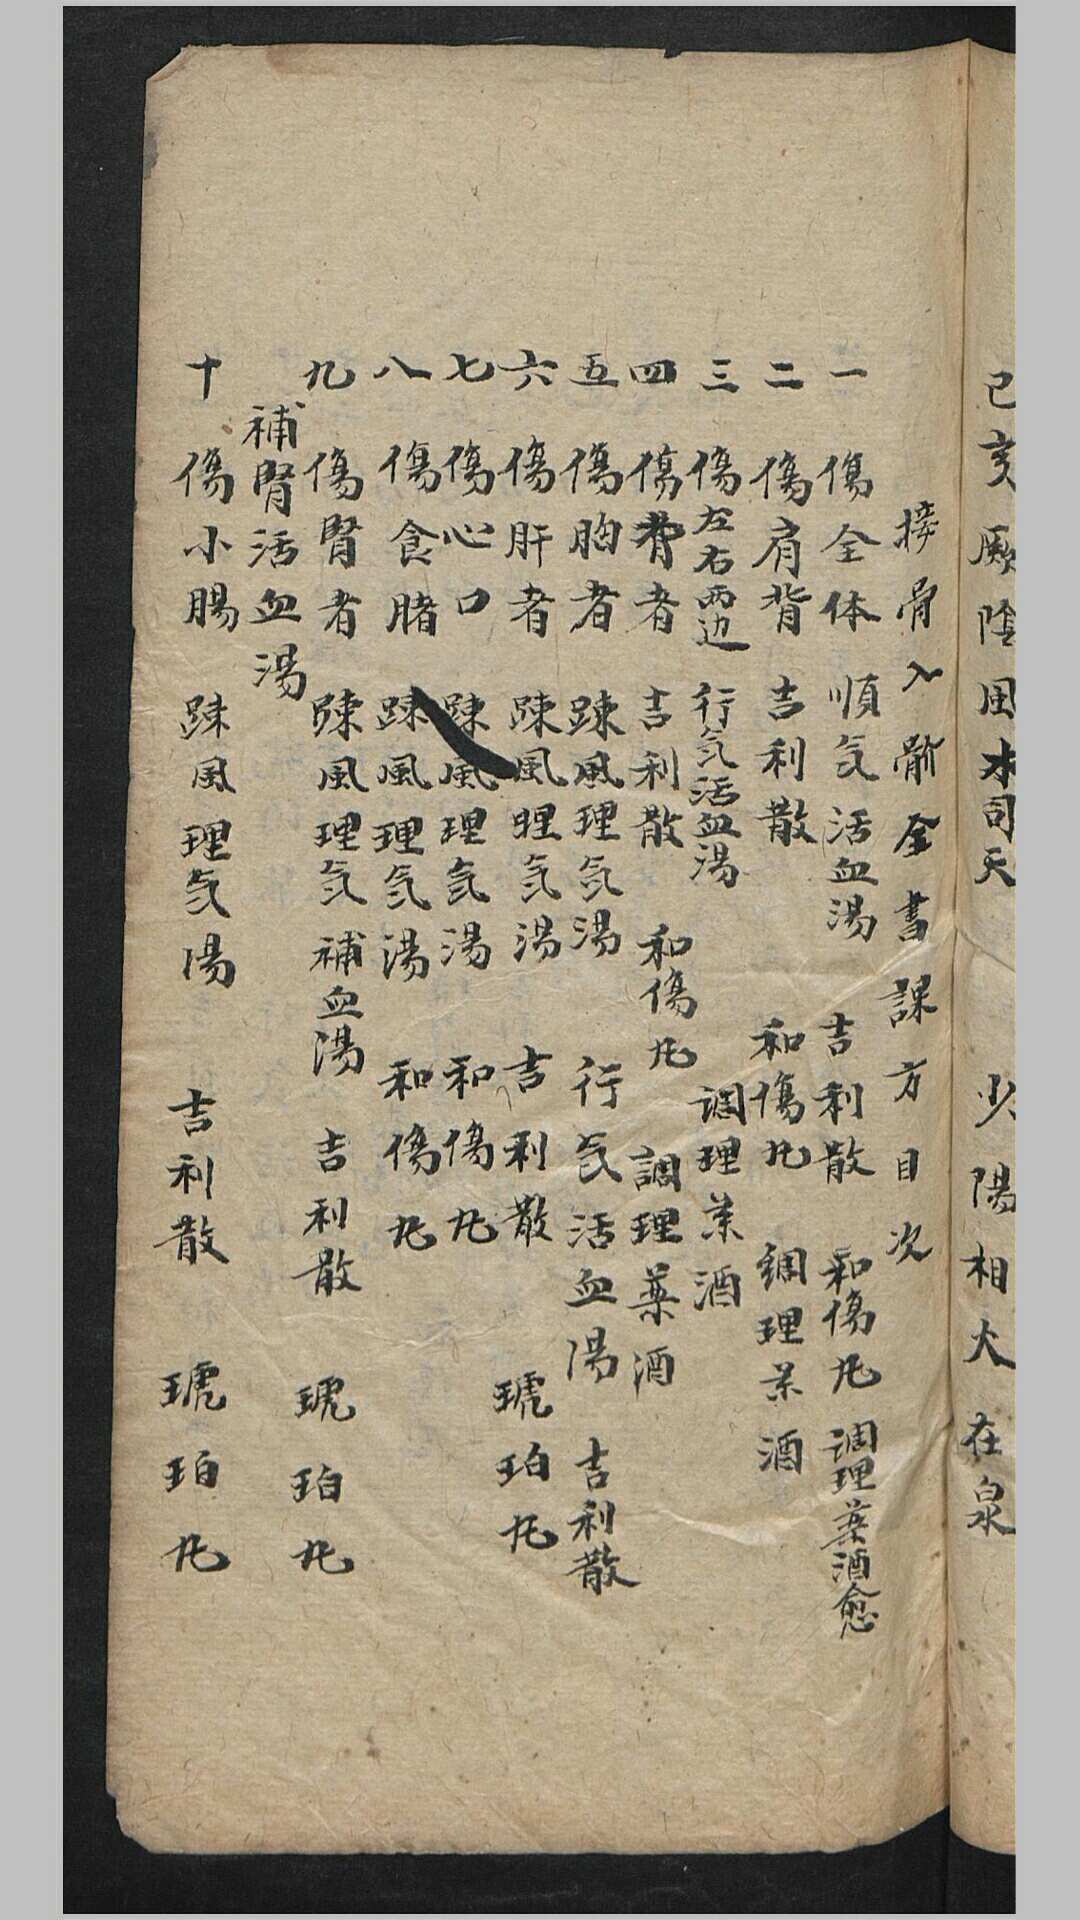 巳亥厥陰風木司天 少陽相火在泉
接骨入骱全書課方目次
一 傷全体 順気活血湯 吉利散 和傷丸 调理薬酒愈
二 傷肩背 吉利散 和傷丸 調理茶酒
三 傷左右两边 行気活血湯 调理茶酒
四 傷者 吉利散 和傷丸 調理薬酒
五 傷胸者 踈風理気湯 行気活血湯 吉利散
六 傷肝者 踈風理気湯 吉利散 琥珀丸
七 傷心口 踈風理気湯 和傷丸
八 傷食膳 踈風理気湯 和傷丸
九 傷腎者 踈風理気補血湯 吉利散 琥珀丸
補腎活血湯
十 傷小腸 踈風理気湯 吉利散 琥珀丸